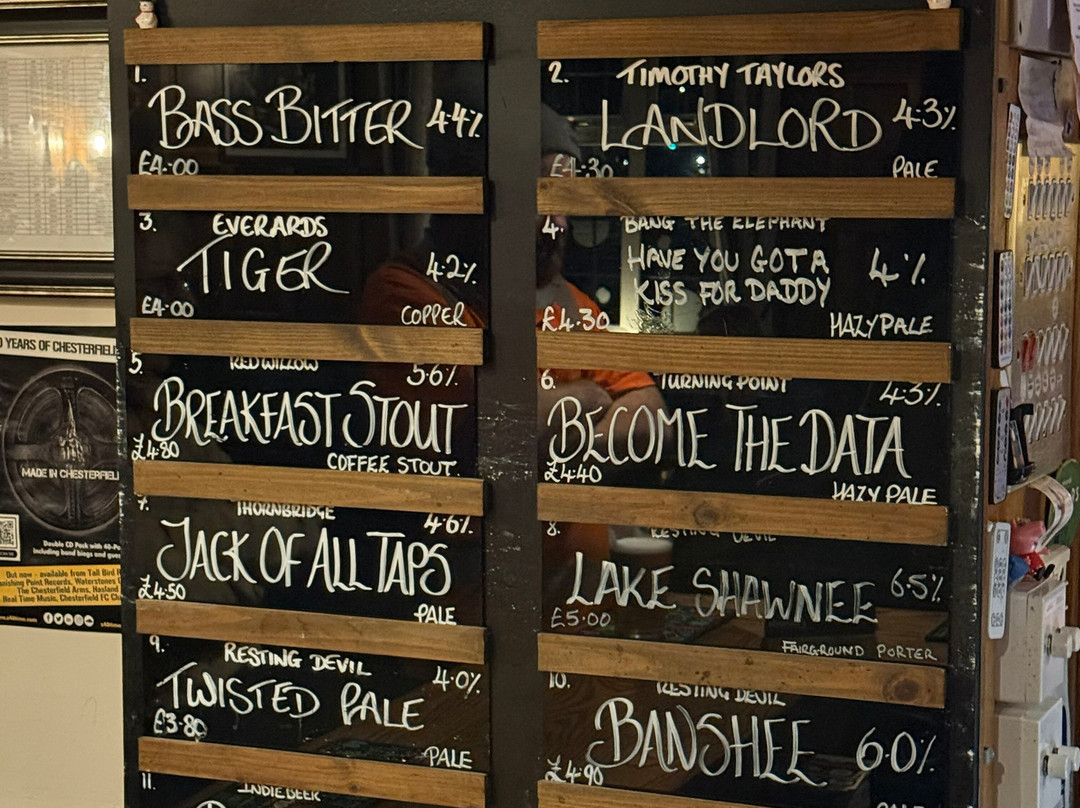 1.
BASS BITTER 4.4%
£4.00
2. TIMOTHY TAYLORS
LANDLORD 4.3%
£4.30 PALE
3. EVERARDS
TIGER 4.2%
£4.00 COPPER
4. BANG THE ELEPHANT
HAVE YOU GOT A
KISS FOR DADDY 4%
£4.30 HAZY PALE
5. REDWILLOW 5.6%
BREAKFAST STOUT
£4.80 COFFEE STOUT
6. TURNING POINT 4.3%
BECOME THE DATA
£4.40 HAZY PALE
7. THORNBRIDGE 4.6%
JACK OF ALL TAPS
£4.50 PALE
8. RESTING DEVIL
LAKE SHAWNEE 6.5%
£5.00 FAIRGROUND PORTER
9. RESTING DEVIL
TWISTED PALE 4.0%
£3.80 PALE
10. RESTING DEVIL
BANSHEE 6.0%
£4.90 PALE
11. INDIE BEER
YEARS OF CHESTERFIEL
MADE IN CHESTERFIEL
Double CD Pack with 40-Pa
including band bings and gues
Out now - available from Tall Bird
nishing Point Records, Waterstones
The Chesterfield Arms, Hasland
Real Time Music, Chesterfield FC